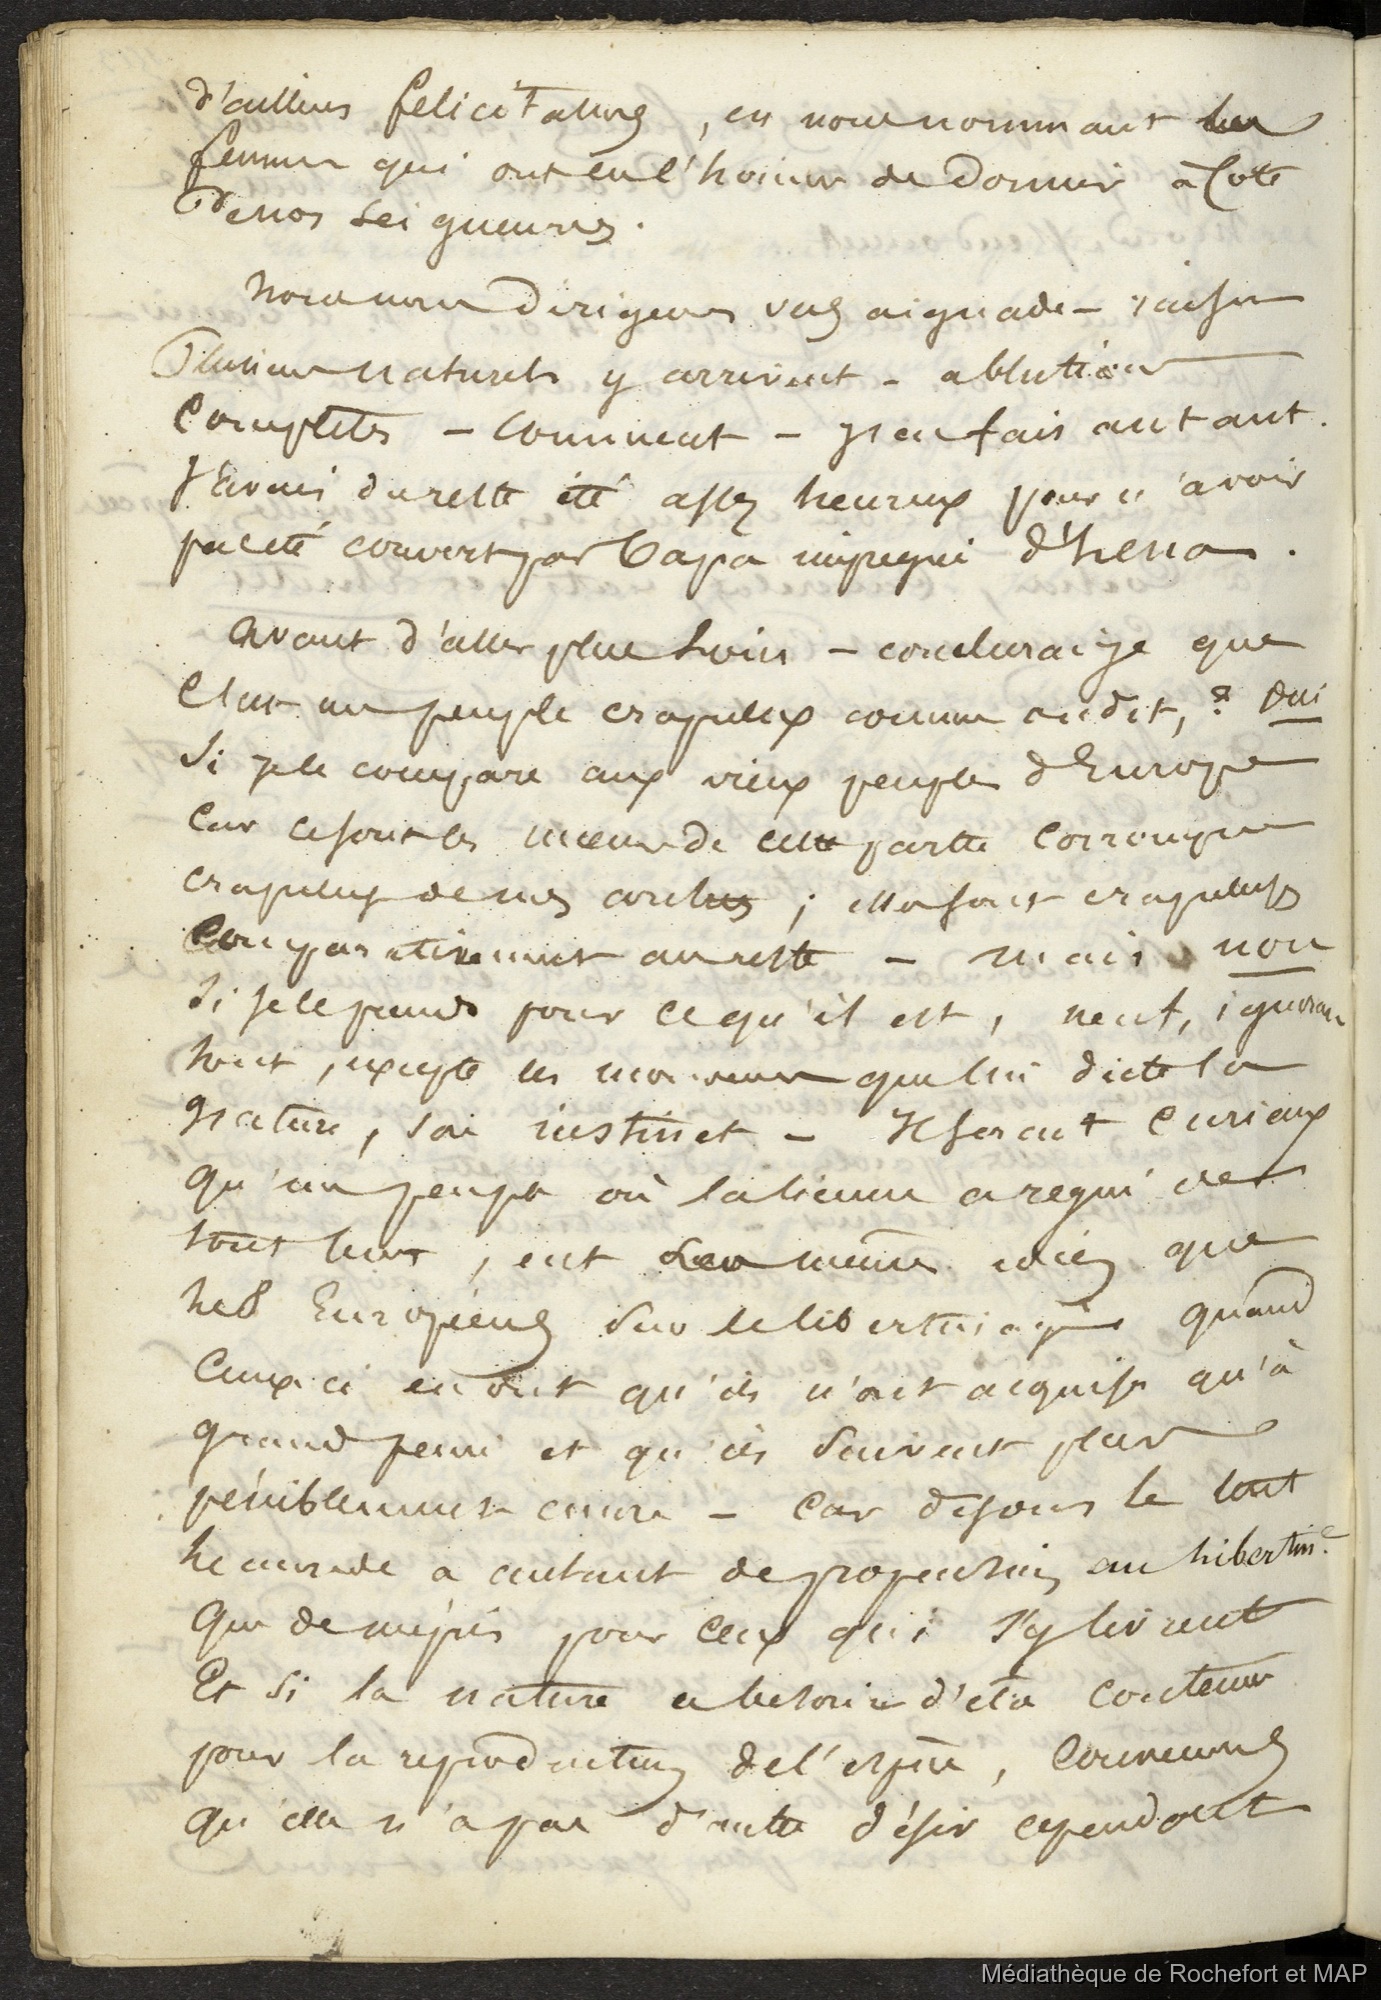 d'ailleurs félicitations, en nous nommant les
femmes qui ont eu l'honneur de dormir à coté
de nos seigneuries.
Nous nous dirigeons vers aiguade -
Plusieurs naturels y arrivent - ablutions
complètes - comment - j'en fais autant.
J'avais du reste été assez heureux pour n'avoir
pas été couvert par tapa impregné d'hena.
Avant d'aller plus loin - conclurai je que
c'est un peuple crapuleux comme on dit, ? Oui
si je le compare aux vieux peuples d'Europe
car ce sont les moeurs de cette partie corrompue
crapuleuse de nos ; elles sont crapuleuses
comparativement au reste - mais non
si je le prends pour ce qu'il est, neuf, ignorant
tout, excepté les que lui dicte la
nature, son instinct - Il serait curieux
qu'un peuple où la licence a regné de
tout tems, eut les mêmes idées que
les Européens sur le libertinage quand
ceux ci en ont qu'ils n'ont acquises qu'à
grand peine et qu'ils suivent plus
péniblement encore - car disons le tout
le monde a autant de propension au libertin.e
que de mépris pour ceux qui s'y livrent
Et si la nature a besoin d'être contenue
pour la reproduction de l'espèce, convenons
qu'elle n'a pas d'autre désir cependant
Médiathèque de Rochefort et MAP